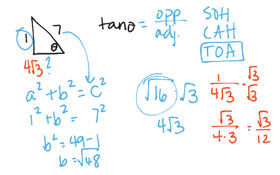 1
7
θ
4√3 ?
a² + b² = c²
1² + b² = 7²
b² = 49 - 1
b = √48
tanθ = opp / adj.
SOH
CAH
TOA
√16 √3
4√3
1 / 4√3 · √3 / √3
√3 / 4·3 = √3 / 12